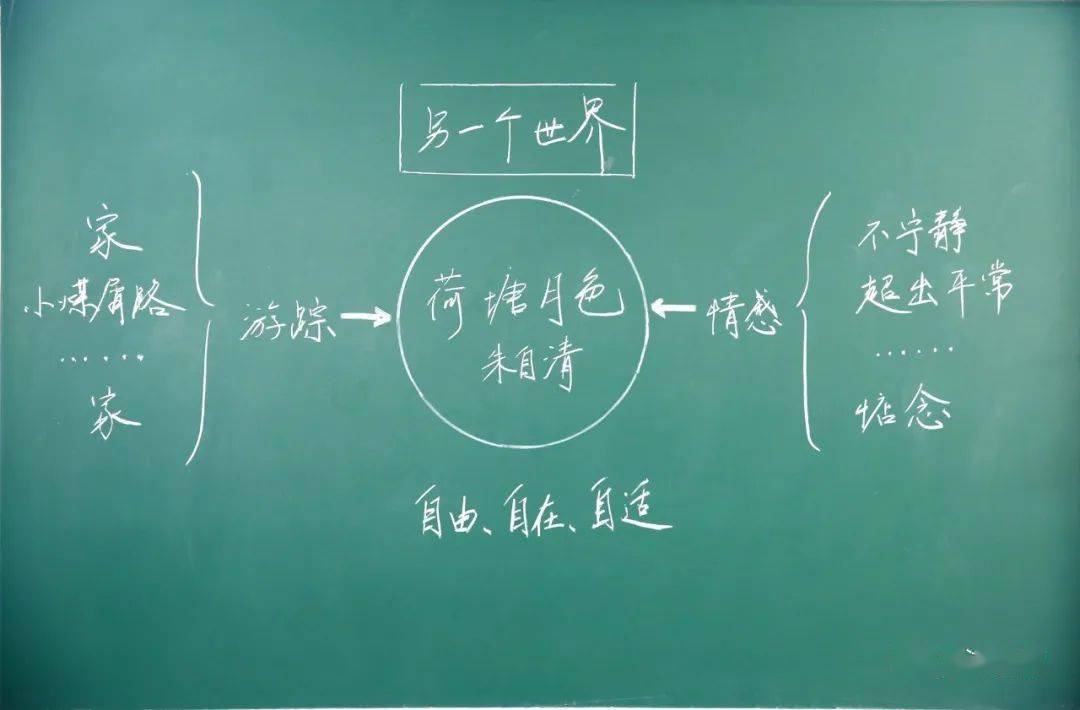 另一个世界
家
小煤屑路
……
家
游踪
荷塘月色
朱自清
情感
不宁静
超出平常
……
惦念
自由、自在、自适